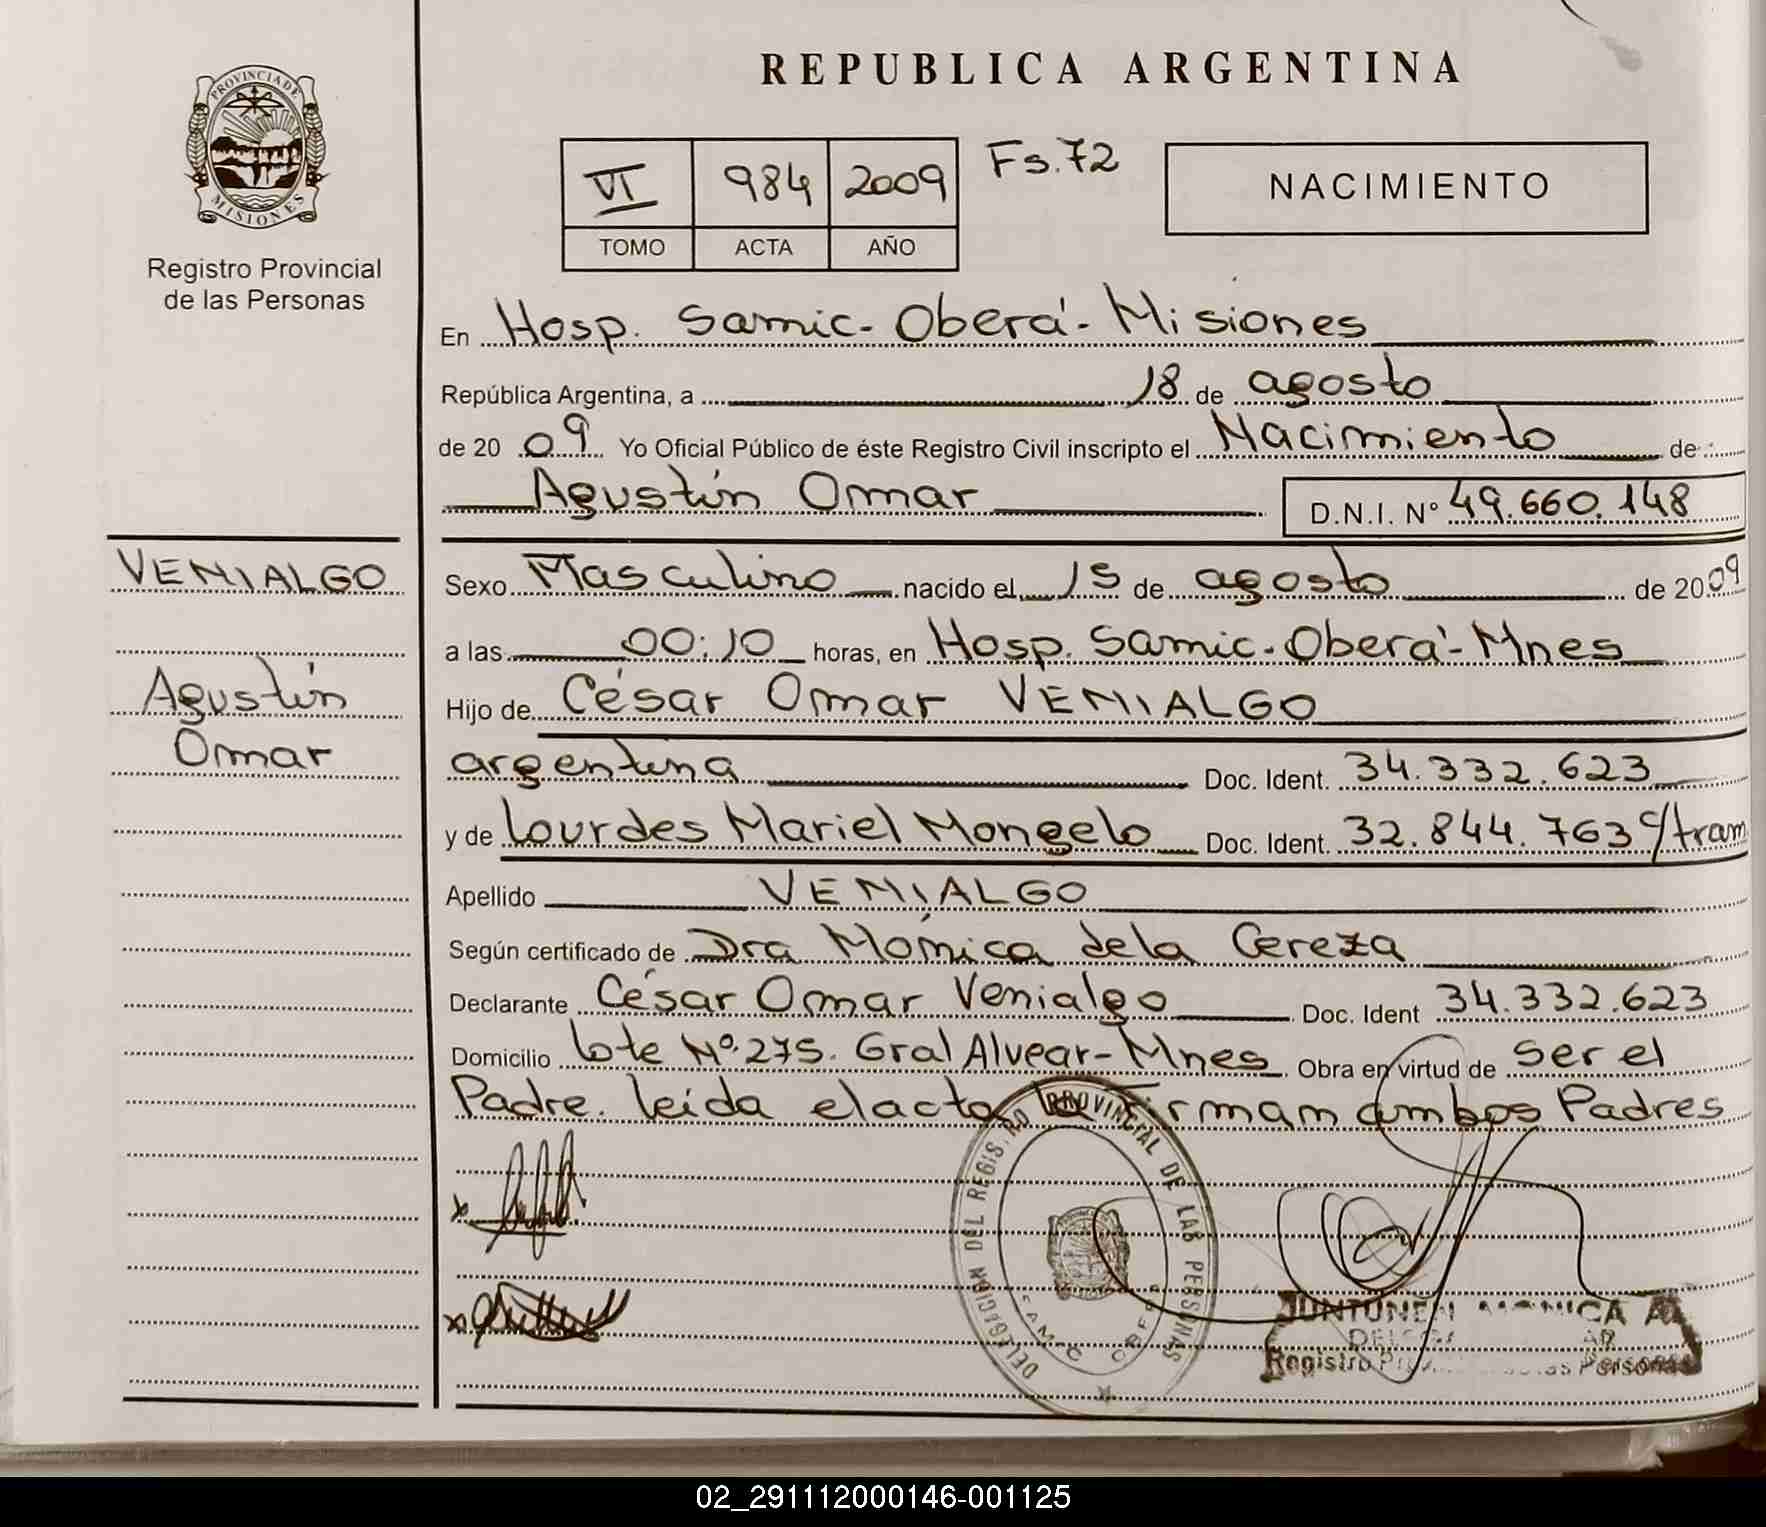 REPUBLICA ARGENTINA
PROVINCIA DE
MISIONES
Registro Provincial
de las Personas
VI 984 2009 Fs. 72
TOMO ACTA AÑO
NACIMIENTO
En Hosp. Samic - Oberá - Misiones
República Argentina, a 18 de agosto
de 20 09 Yo Oficial Público de éste Registro Civil inscripto el Nacimiento de
Agustín Omar D.N.I. N° 49.660.148
VENIALGO
Agustín
Omar
Sexo Masculino nacido el 15 de agosto de 2009
a las 00:10 horas, en Hosp. Samic - Oberá - Mnes
Hijo de César Omar VENIALGO
argentina Doc. Ident. 34.332.623
y de Lourdes Mariel Mongelo Doc. Ident. 32.844.763 c/tram
Apellido VENIALGO
Según certificado de Dra Mónica dela Cereza
Declarante César Omar Venialgo Doc. Ident 34.332.623
Domicilio lote N° 275. Gral Alvear - Mnes Obra en virtud de ser el
Padre. leída elacta la Firman ambos Padres
DELEGACION DEL REGISTRO PROVINCIAL DE LAS PERSONAS
JUNTUNEN MONICA A.
Registro Personas
02_291112000146-001125